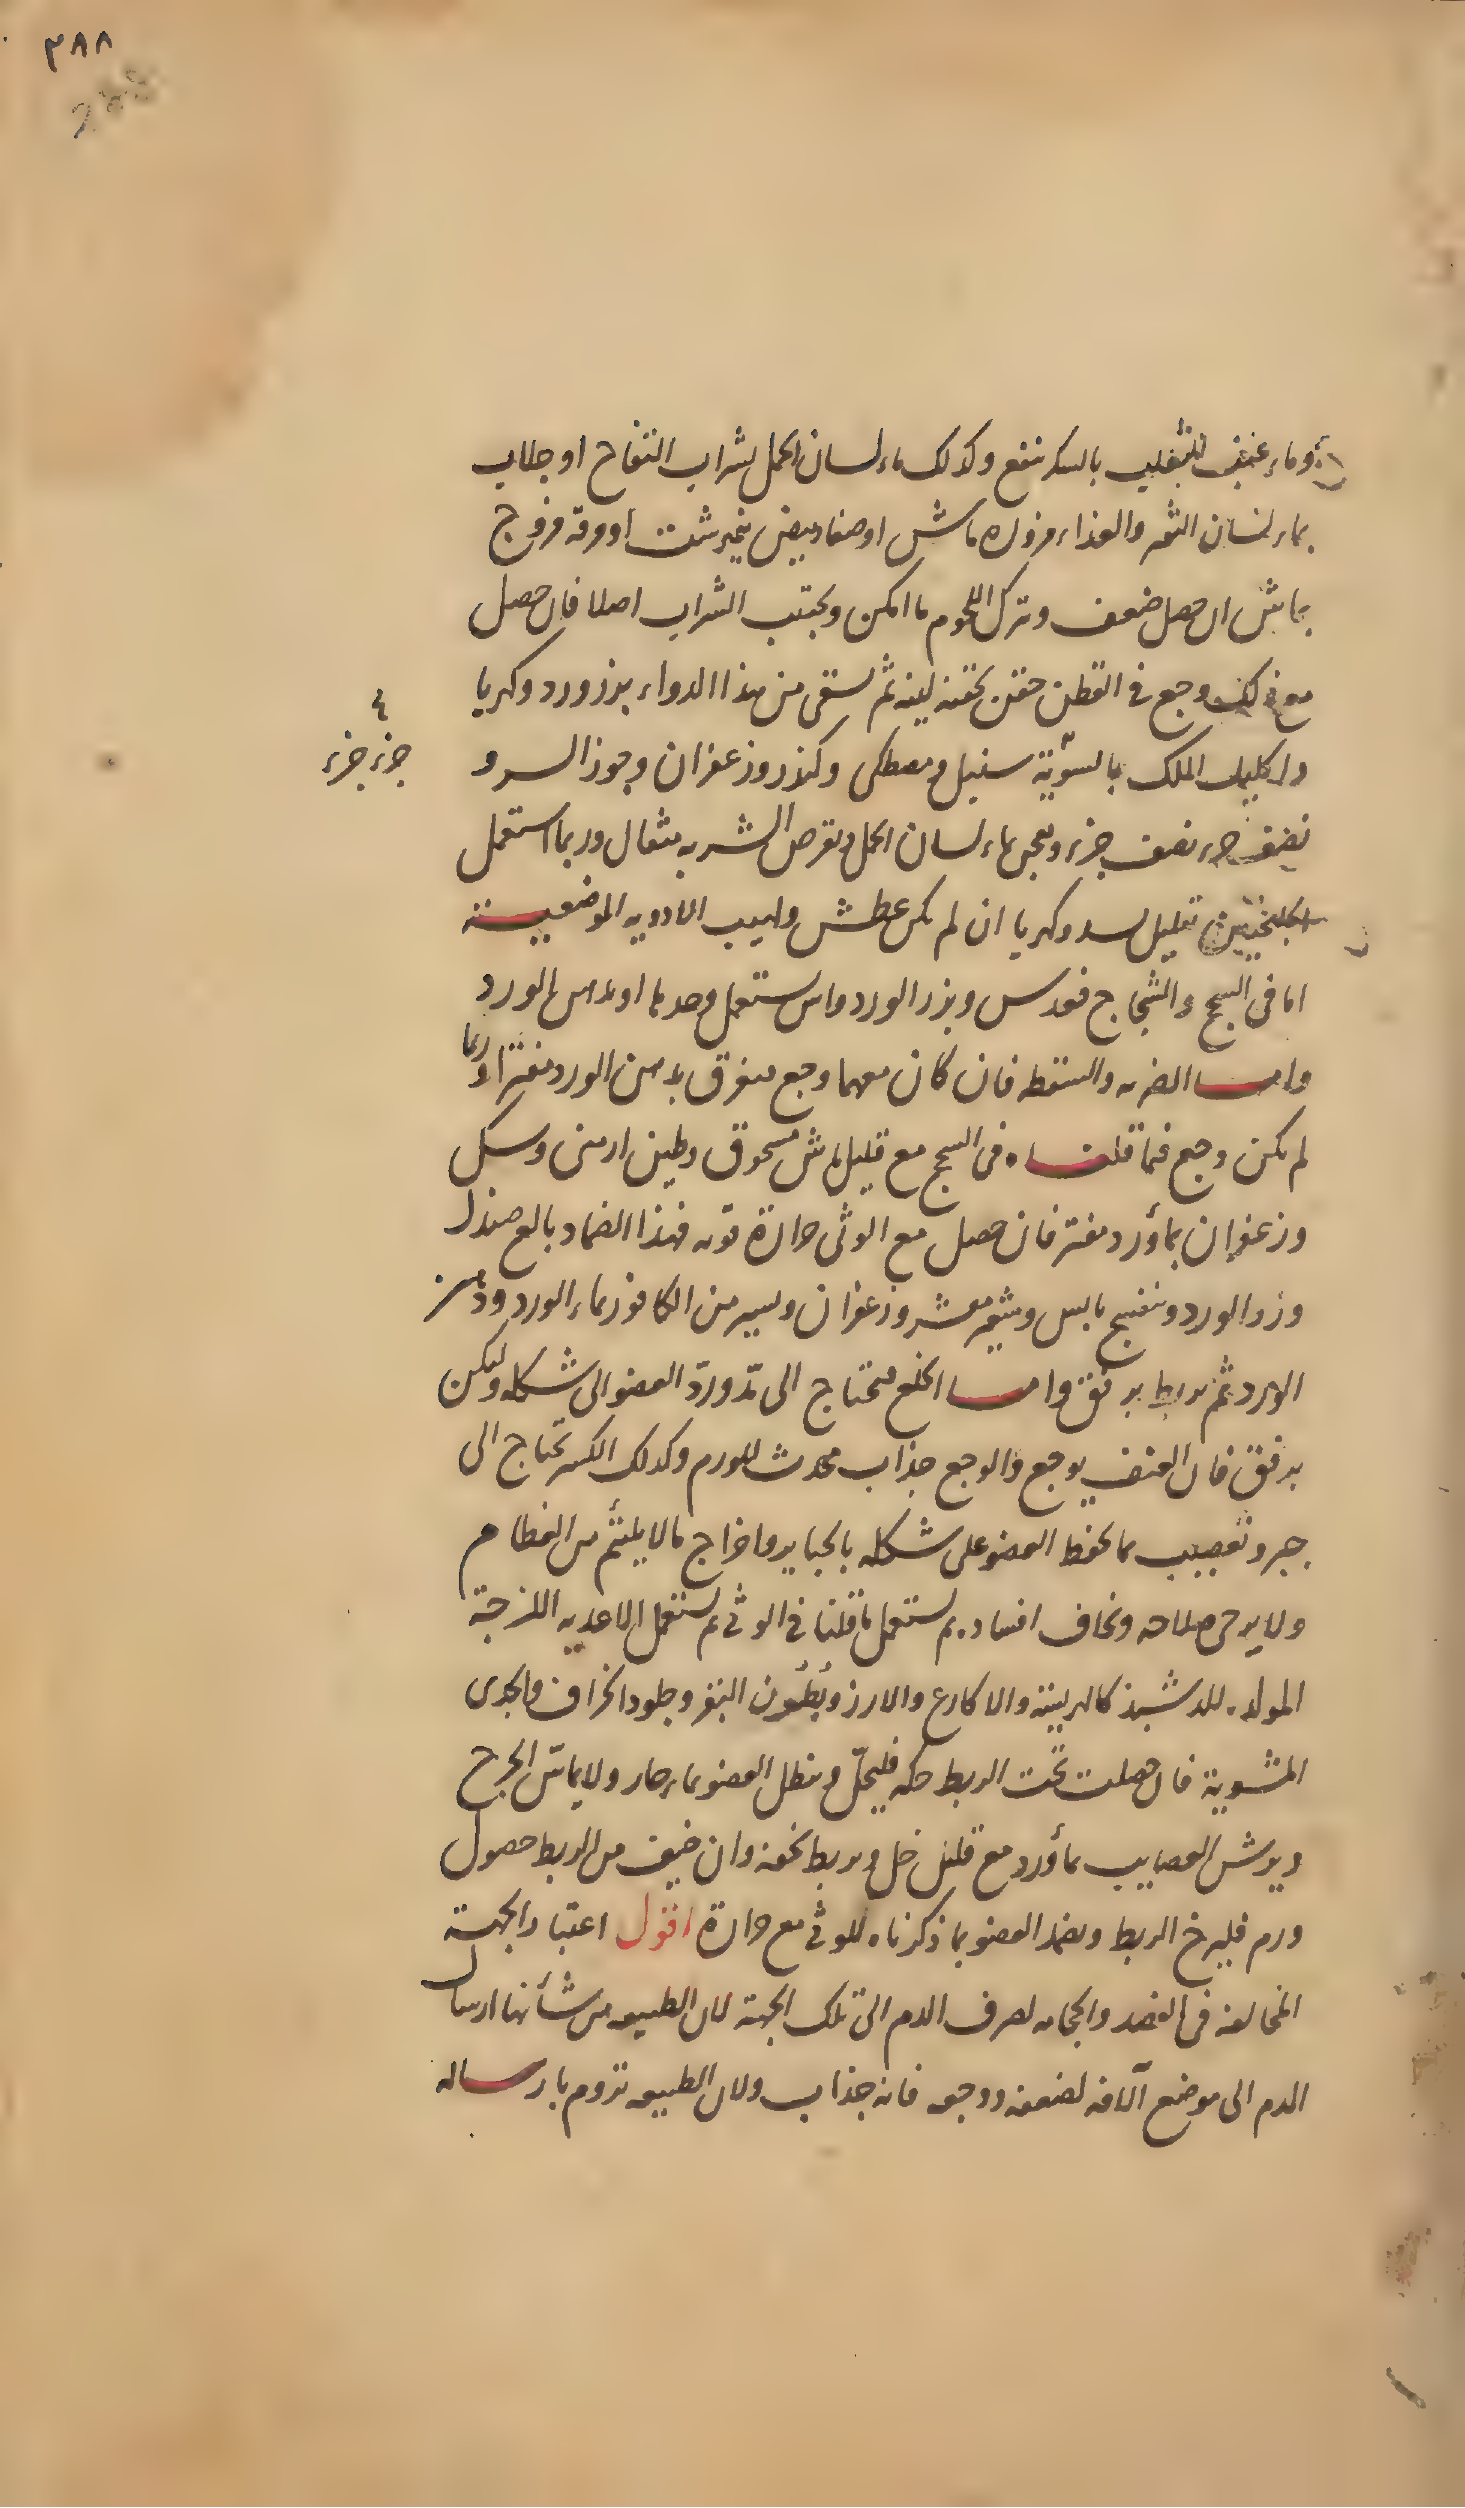 ٢٨٨
288
وماء عنب الثعلب بالسكر ينفع وكذلك ماء لسان الحمل بشراب التفاح او جلاب
بماء لسان الثور والغذاء مزوره ماش او صفار بيض نيمرشت او مرقة فروج
بماش ان حصل ضعف وترك اللحوم ما امكن ويجتنب الشراب اصلا فان حصل
مع ذلك وجع في القطن حقن بحقنه لينه ثم يسقى من هذا الدواء بزر ورد وكهربا
واكليل الملك بالسوية سنبل ومصطكى وكندر وزعفران وجوز السرو
جزء جزء
نصف جزء نصف جزء ويعجن بماء لسان الحمل ويقرص الشربه مثقال وربما استعمل
الجلنجبين بقليل سد وكهربا ان لم يكن عطش ولهيب الادويه الموضعية
اما في السحج والشجاج فعدس وبزر الورد واس يستعمل وحدها او بدهن الورد
واما الضربه والسقطه فان كان معهما وجع مغرق بدهن الورد مفترا وربما
لم يكن وجع فما قلناه في السحج مع قليل ماش مسحوق وطين ارمنى وسك
وزعفران بماورد مفتر فان حصل مع الوثى حرارة قويه فهذا الضماد بالغ صندل
وزر الورد وبنفسج يابس وشعير مقشر وزعفران ويسير من الكافور بماء الورد ودهن
الورد ثم يربط برفق واما الخلع فيحتاج الى مد ورد العضو الى شكله وليكن
برفق فان العنف يوجع والوجع جذاب محدث للورم وكذلك الكسر يحتاج الى
جبر وتعصيب بما يحفظ العضو على شكله بالجباير واخراج ما لا يلتئم من العظام
ولا يرجى صلاحه ويخاف افساده ثم يستعمل ما قلنا في الوثي ثم يستعمل الاغديه اللزجة
المولده للدشبذ كالهريسة والاكارع والارز وبطون البقر وجلود الخراف والجدى
المشوية فان حصلت تحت الربط حكه فليحل وينطل العضو بماء حار ولا يماس الجرح
ويرش العصايب بماورد مع قليل خل ويربط بخفه وان خيف من الربط حصول
ورم فليرخ الربط ويضمد العضو بما ذكرناه للوثي مع حرارة اقول اعتبار الجهة
المخالفه في الفصد والحجامه لصرف الدم الى تلك الجهة لان الطبيعه من شأنها ارسال
الدم الى موضع الآفه لضعفه ووجعه فانه جذاب ولان الطبيعه تروم بارساله